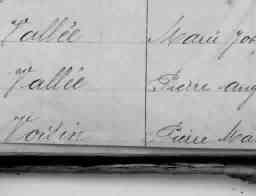 Vallée Marie Jos
Vallée Pierre Aug
Voisin Pierre Ma